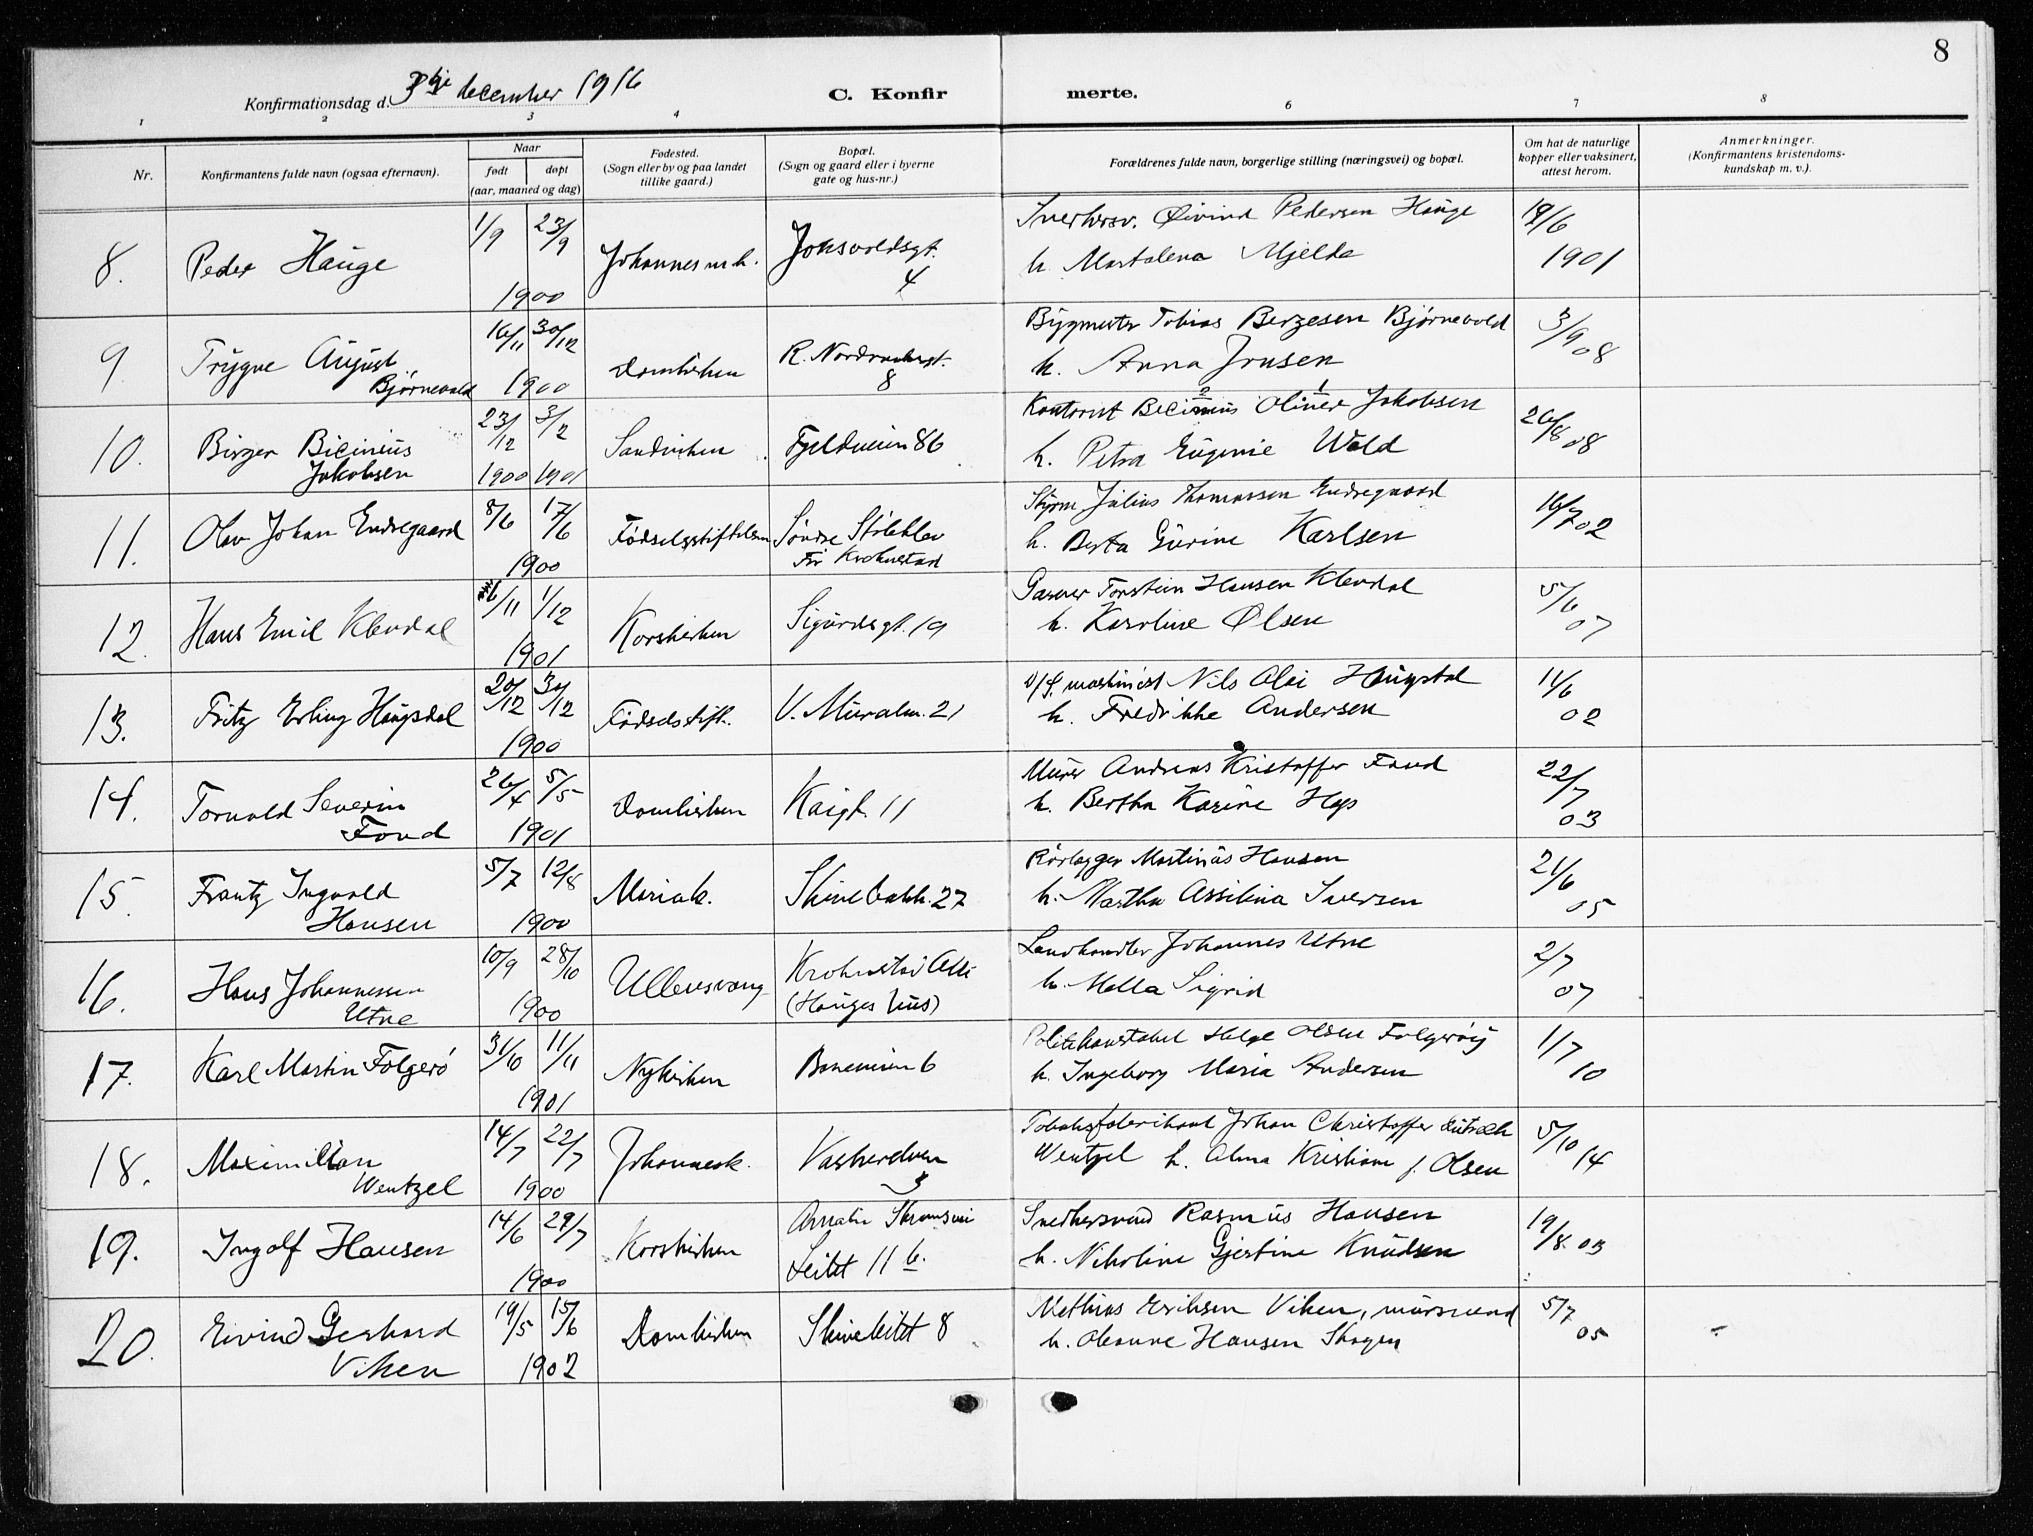 8
Konfirmationsdag d. 3die december 1916
C. Konfir merte.
1 2 3 4 6 7 8
Nr.
Konfirmantens fulde navn (ogsaa efternavn).
Naar
født døpt
(aar, maaned og dag)
Fødested.
(Sogn eller by og paa landet
tillike gaard.)
Bopæl.
(Sogn og gaard eller i byerne
gate og hus-nr.)
Forældrenes fulde navn, borgerlige stilling (næringsvei) og bopæl.
Om hat de naturlige
kopper eller vaksinert,
attest herom.
Anmerkninger.
(Konfirmantens kristendoms-
kundskap m. v.).
8. Peder Hauge
1/9 23/9
1900
Johannesm k.
Jonsvoldsgt.
4
Øivind Pedersen Hauge
h. Martalena Mjelde
19/6
1901
9. Trygve August
Bjørnevold
16/11 30/12
1900
Domkirken
8
Bygmester Tobias Bergesen Bjørnevold
h. Anna Jensen
3/9 08
10. Birger Bicinius
Jakobsen
23/12 3/2
1900 1901
Sandviken
Fjeldveien 86
Kontorist Bicinius Oliver Jakobsen
h. Petra Eugenie Wold
26/8 08
11. Olav Johan Endregaard
8/6 17/6
1900
Fødselsstiftelsen
Søndre
Kronstad
Styrm Julius Thomassen Endregaard
h. Berta Gurine Karlsen
16/7 02
12. Hans Emil Klevdal
6/11 1/12
1901
Korskirken
Sigurdsgt. 19
Garver Torstein Hansen Klevdal
h. Karoline Olsen
5/6
07
13. Fritz Erling Haugsdal
20/12 30/12
1900
Fødselsstift.
V. Muralm. 21
maskinist Nils Olai Haugsdal
h. Fredrikke Andersen
11/6
02
14. Torvald Severin
Fond
26/4 5/5
1901
Domkirken
Kaigt. 11
Murer Andreas Kristoffer Fond
h. Bertha Karine Hop
22/7
03
15. Frantz Ingvald
Hansen
5/7 12/8
1900
Mariak.
Skivebakk. 27
Rørlægger Martinus Hansen
h. Martha Assilina Iversen
21/6
05
16. Hans Johannessen
Utne
10/9 28/10
1900
Ullensvang
Kronstad Alle
(Hauges hus)
Landhandler Johannes Utne
h. Malla Sigrid
2/7
07
17. Karl Martin Folgerø
31/10 11/11
1901
Nykirken
6
Politikonstabel Helge Olsen Folgerøy
h. Ingeborg Maria Andersen
1/7
10
18. Maximilian
Wentzel
14/7 22/7
1900
Johannesk.
Vaskerelven
3
Tobaksfabrikant Johan Christoffer
Wentzel h. Alma Kristiane f. Olsen
5/10 14
19. Ingolf Hansen
14/6 29/7
1900
Korskirken
Leitet 11 b.
Snedkersvend Rasmus Hansen
h. Nikoline Gjertine Knudsen
19/8. 03
20. Eivind Gerhard
Viken
19/5 15/6
1902
Domkirken
Skiveleitet 8
Mathias Eriksen Viken, mursvend
h. Oleanne Hansen Skogen
5/7
05